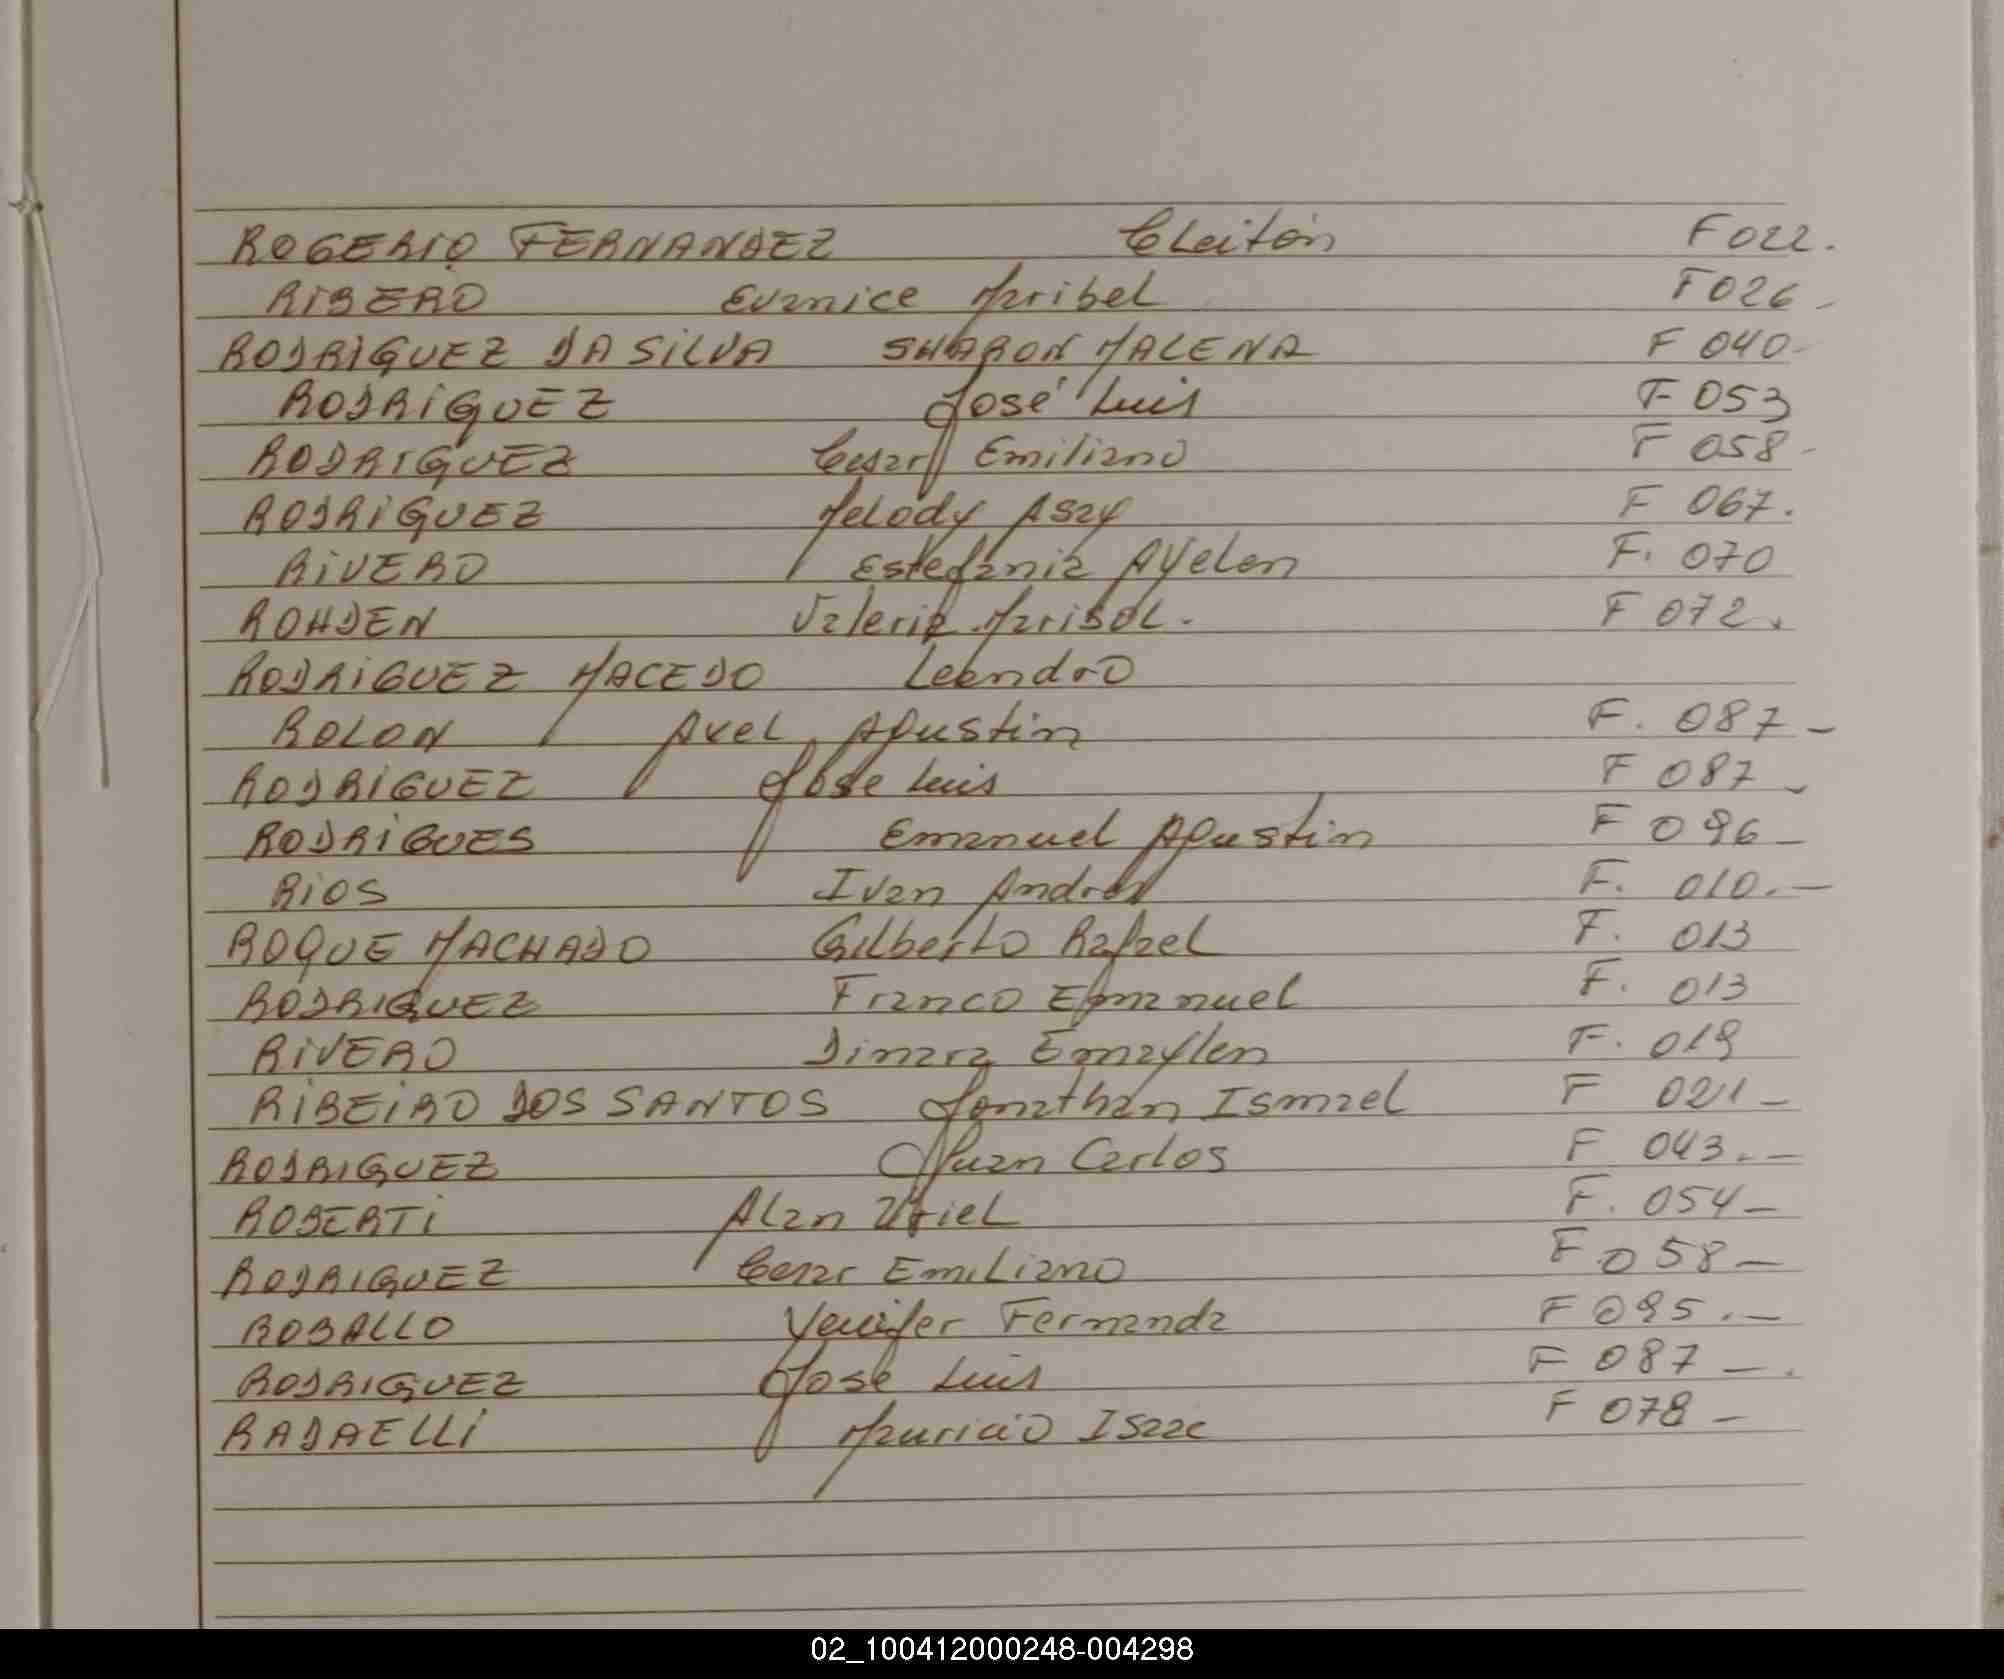 ROGERIO FERNANDEZ Cleitón F022.
RIBERO Eunice Maribel F026-
RODRIGUEZ DA SILVA SHARON MALENA F 040-
RODRIGUEZ José Luis F 053
RODRIGUEZ Cesar Emiliano F 058-
RODRIGUEZ Melody Asay F 067.
RIVERO Estefania Ayelen F. 070
ROHDEN Valeria Marisol. F 072.
RODRIGUEZ MACEDO Leandro
ROLON Axel Agustin F. 087-
RODRIGUEZ Jose Luis F 087-
RODRIGUES Emanuel Agustin F 096-
RIOS Ivan Andres F. 010.-
ROQUE MACHADO Gilberto Rafael F. 013
RODRIGUEZ Franco Emanuel F. 013
RIVERO Dimara F. 019
RIBEIRO DOS SANTOS Jonathan Ismael F 021-
RODRIGUEZ Juan Carlos F 043.-
ROBERTI Alan Uriel F. 054-
RODRIGUEZ Cesar Emiliano F 058-
ROBALLO Yenifer Fernanda F 095.-
RODRIGUEZ Jose Luis F 087-.
RADAELLI Mauricio Isaac F 078-
02_100412000248-004298